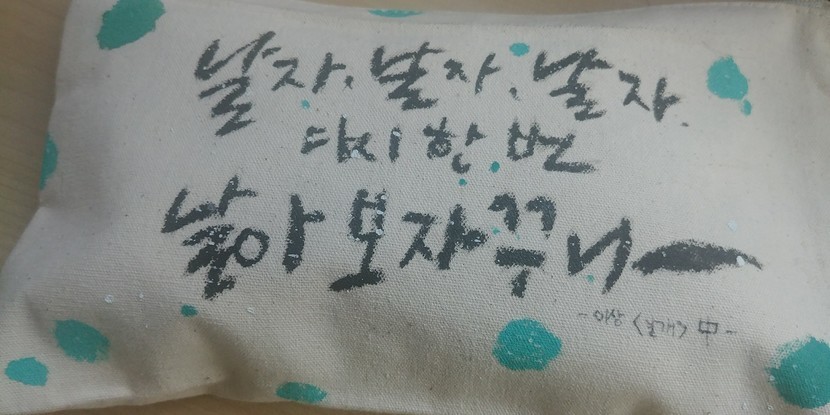 날자. 날자. 날자.
다시 한 번
날아 보자꾸나
- 이상 <날개> 中 -